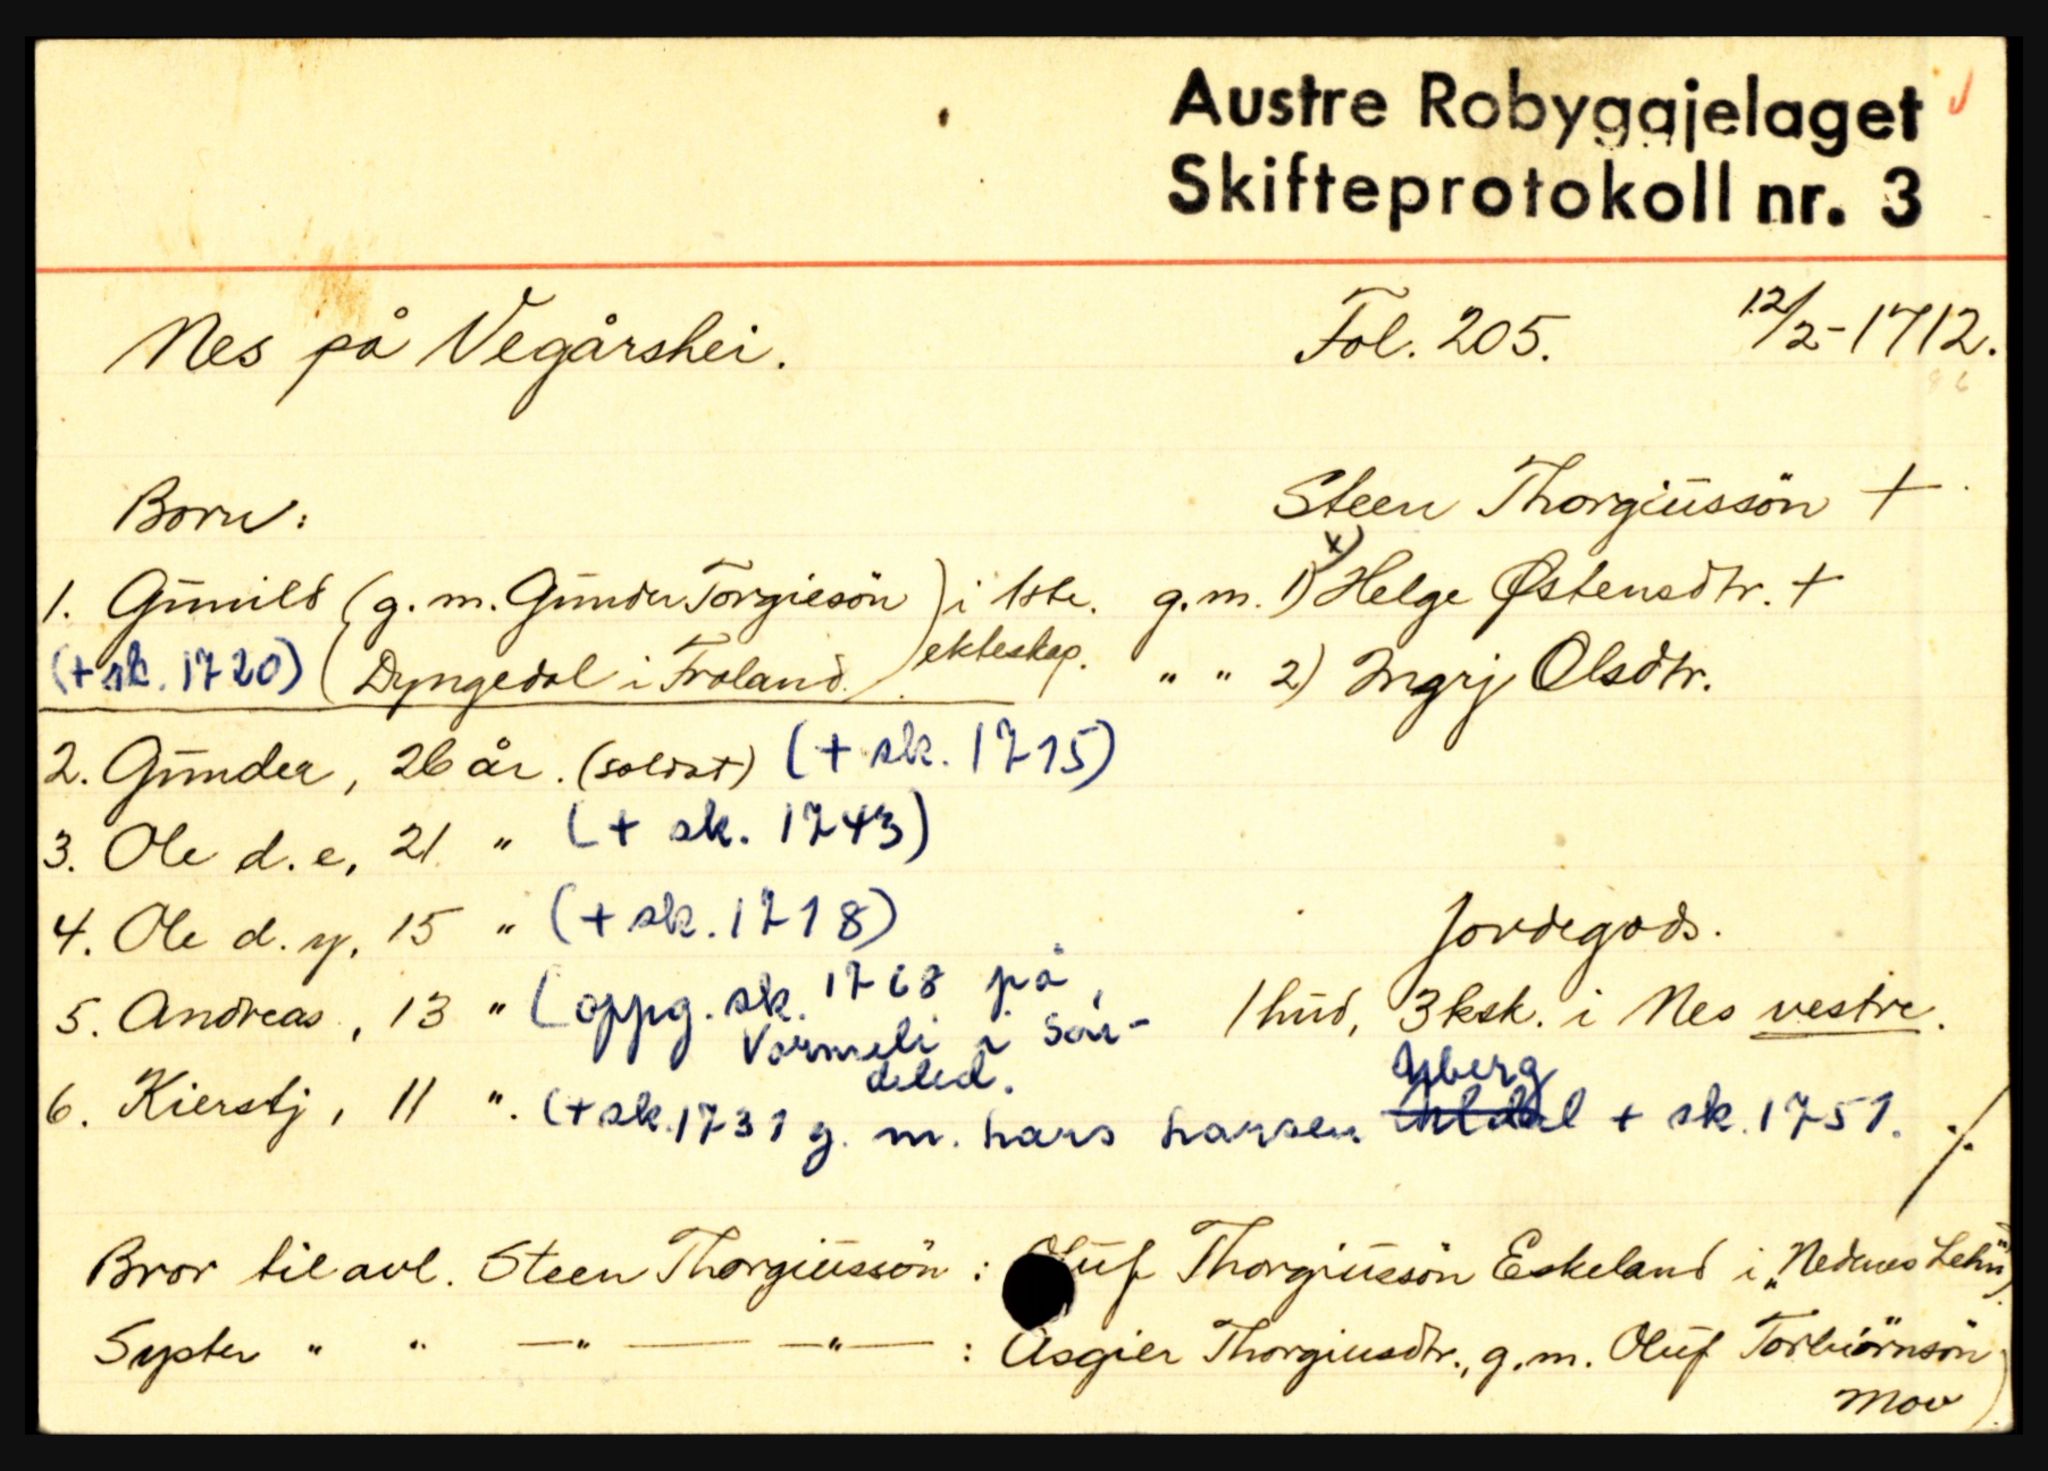 Austre Robyggjelaget
Skifteprotokoll nr. 3
Nes på Vegårshei. Fol. 205. 12/2-1712.
Born: Steen Thorgiussön +
1. Gunild (g.m. Gunder Torgiesön) i 1ste. g.m. 1) x) Helge Østensdtr. +
(+ sk. 1720) (Dyngedal i Froland.) ekteskap. " " 2) Ingrj Olsdtr.
2. Gunder, 26 år. (soldat) (+ sk. 1715)
3. Ole d.e, 21 " (+ sk. 1743)
4. Ole d.y, 15 " (+ sk. 1718) Jordegods.
5. Andreas, 13 " (oppg. sk. 1768 på, 1 hud, 3 ksk. i Nes vestre.
Vormeli i Søn-
deled.
Yberg
6. Kierstj, 11 ". (+ sk. 1731 g. m. hans hansen + sk. 1751. ./.
Bror til avl. Steen Thorgiussön : Oluf Thorgiussön Eskeland i "Nednes Lehn")
Syster " " —"— —"— : Asgier Thorgiusdtr., g.m. Oluf Torbiörnsön
Mov)